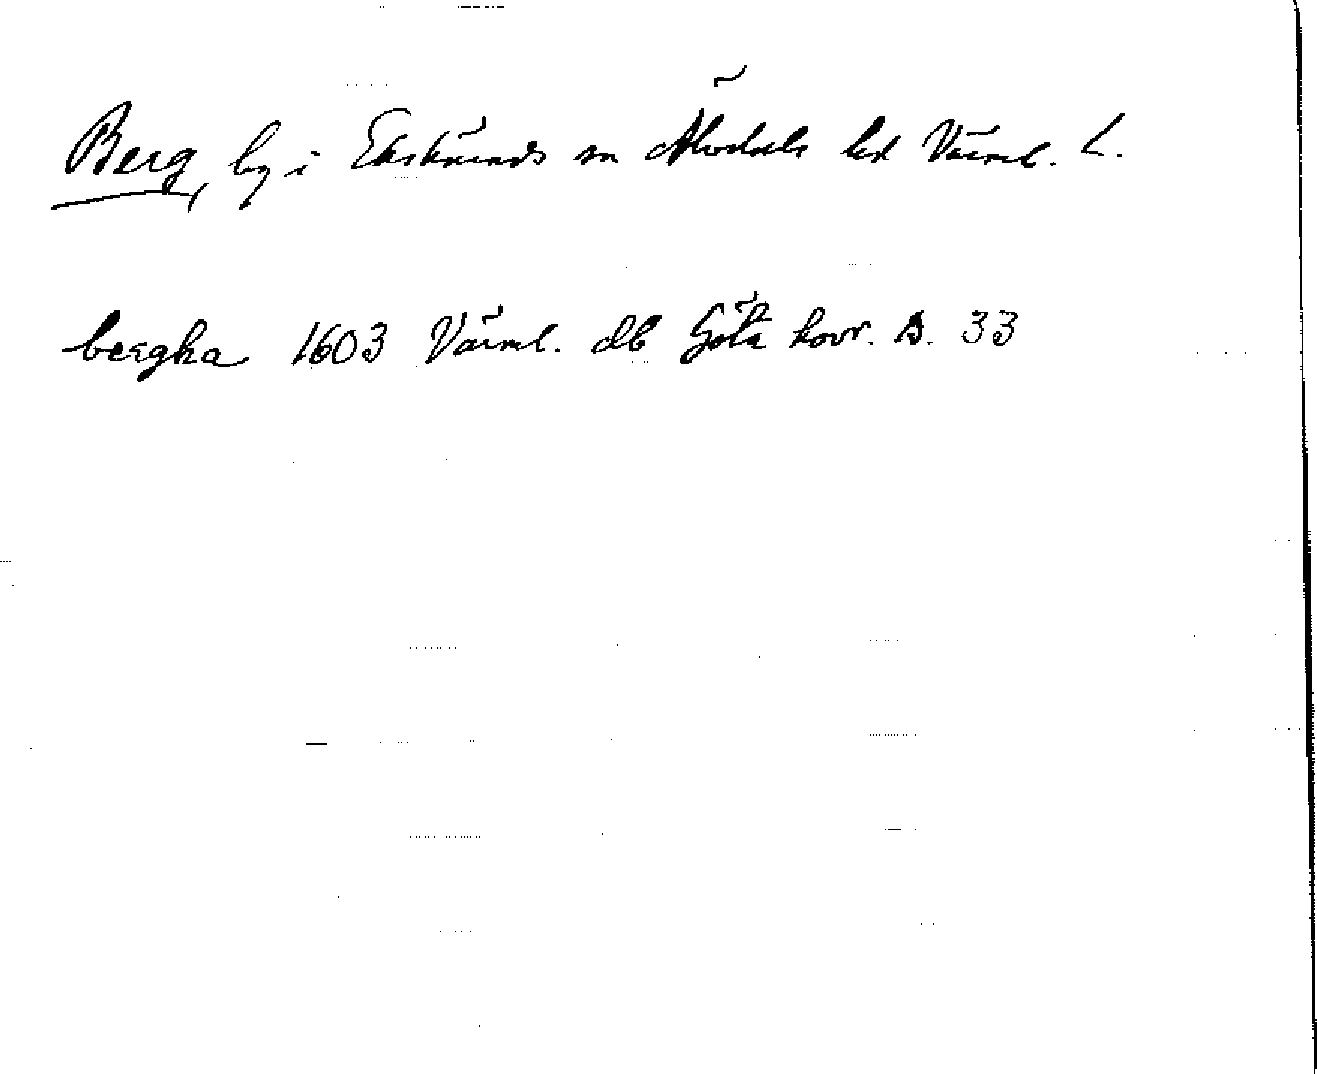 Berg, by i Ekshärads sn Älvdals hd Värml. L.
bergha 1603 Värml. db Göta hovr. B. 33